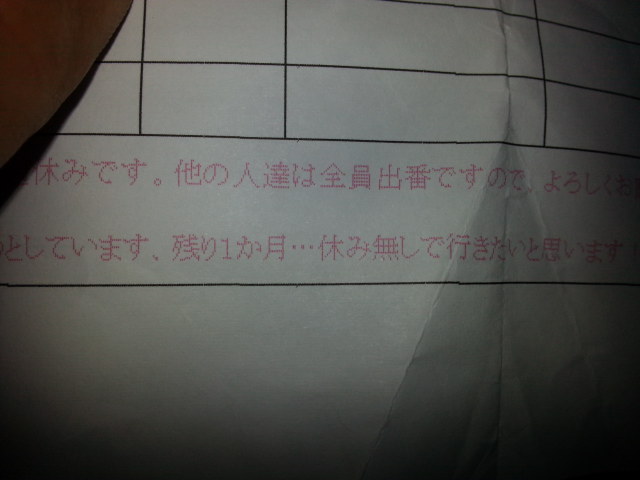 休みです。他の人達は全員出番ですので、よろしくお
としています、残り1か月…休み無しで行きたいと思います！